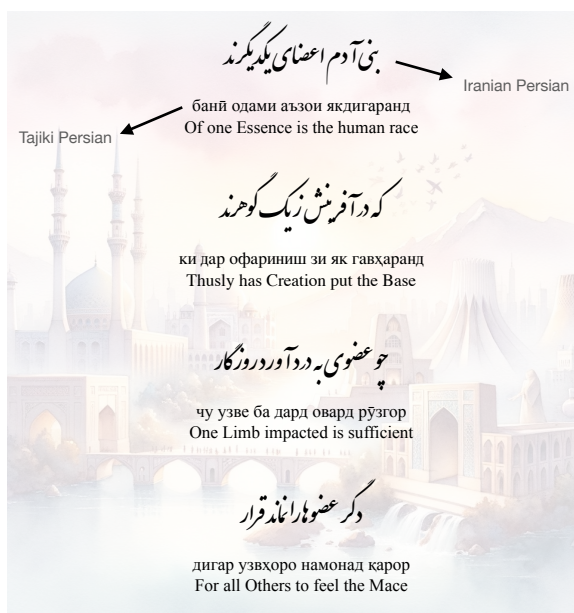 بنی‌آدم اعضای یکدیگرند
Iranian Persian
банӣ одами аъзои якдигаранд
Tajiki Persian
Of one Essence is the human race
که در آفرینش ز یک گوهرند
ки дар офариниш зи як гавҳаранд
Thusly has Creation put the Base
چو عضوی به درد آورد روزگار
чу узве ба дард овард рӯзгор
One Limb impacted is sufficient
دگر عضوها را نماند قرار
дигар узвҳоро намонад қарор
For all Others to feel the Mace